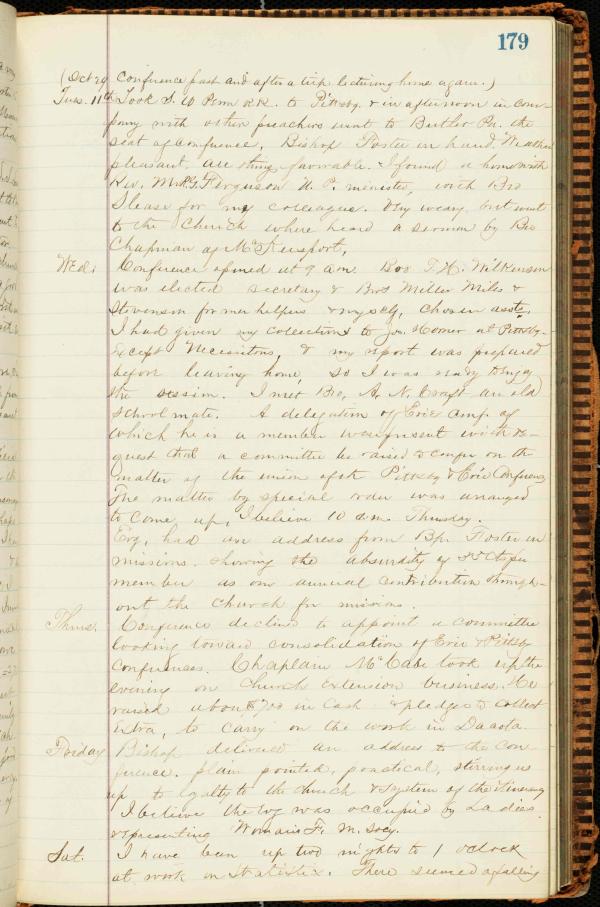 179
(Oct 29 Conference past and after a trip lecturing home again.)
Tues. 11th Took 5.10 Penn RR. to Pittsbg. & in afternoon in com-
pany with other preachers went to Butler Pa. the
seat of conference. Bishop Foster in hand. Weather
pleasant all things favorable. I found a home with
Rev. Ferguson U. P. minister, with Bro
Slease for my colleague. Very weary but went
to the Church where heard a sermon by Bro
Chapman of McKeesport.
Wed. Conference opened at 9 am. Bro T. H. Wilkinson
was elected secretary & Bros Miller Miles &
Stevenson former helpers & myself, chosen assts.
I had given my collections to Jos. Horner at Pittsbg.
except Necessitous, & my report was prepared
before leaving home, so I was ready to enjoy
the session. I met Bro. A. N. Craft an old
schoolmate. A delegation of Erie Conf. of
which he is a member was present with re-
quest that a committee be raised to confer on the
matter of the union of the Pittsbg & Erie Conferences
The matter by special order was arranged
to come up, I believe 10 a.m. Thursday.
Evg. had an address from Bp. Foster on
missions. showing the absurdity of cts per
member as our annual contribution through-
out the Church for missions.
Thurs. Conference declined to appoint a committee
looking toward consolidation of Erie & Pittsbg
Conferences. Chaplain McCabe took up the
evening on Church Extension business. He
raised about $700 in cash & pledges to collect
extra, to carry on the work in Dacota.
Friday Bishop delivered an address to the con-
ference. plain pointed, practical, stirring us
up to loyalty to the church & system of the Itinerancy
I believe the evg was occupied by Ladies
representing Woman's F. M. Socy.
Sat. I have been up two nights to 1 oclock
at work on Statistix. There seemed a falling